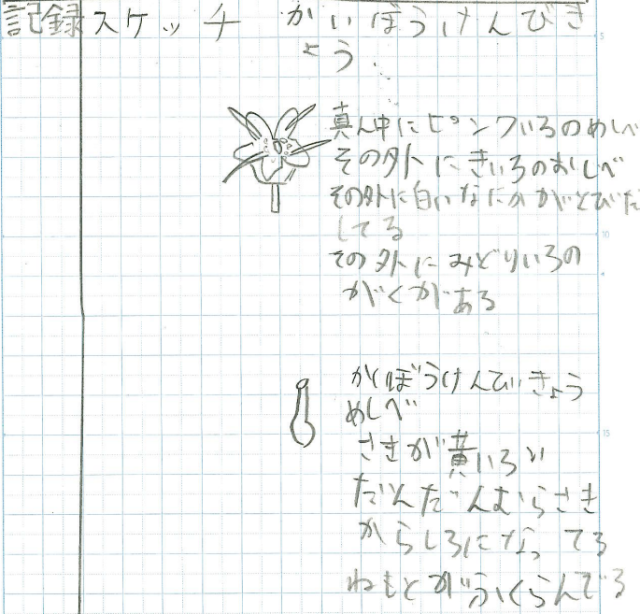 記録スケッチ
かいぼうけんびき
ょう
真ん中にピンクいろのめしべ
その外にきいろのおしべ
その外に白いなにかがとびだ
してる
その外にみどりいろの
がくがある
かいぼうけんびきょう
めしべ
さきが黄いろい
だんだんむらさき
からしろになってる
ねもとがふくらんでる
5
10
15